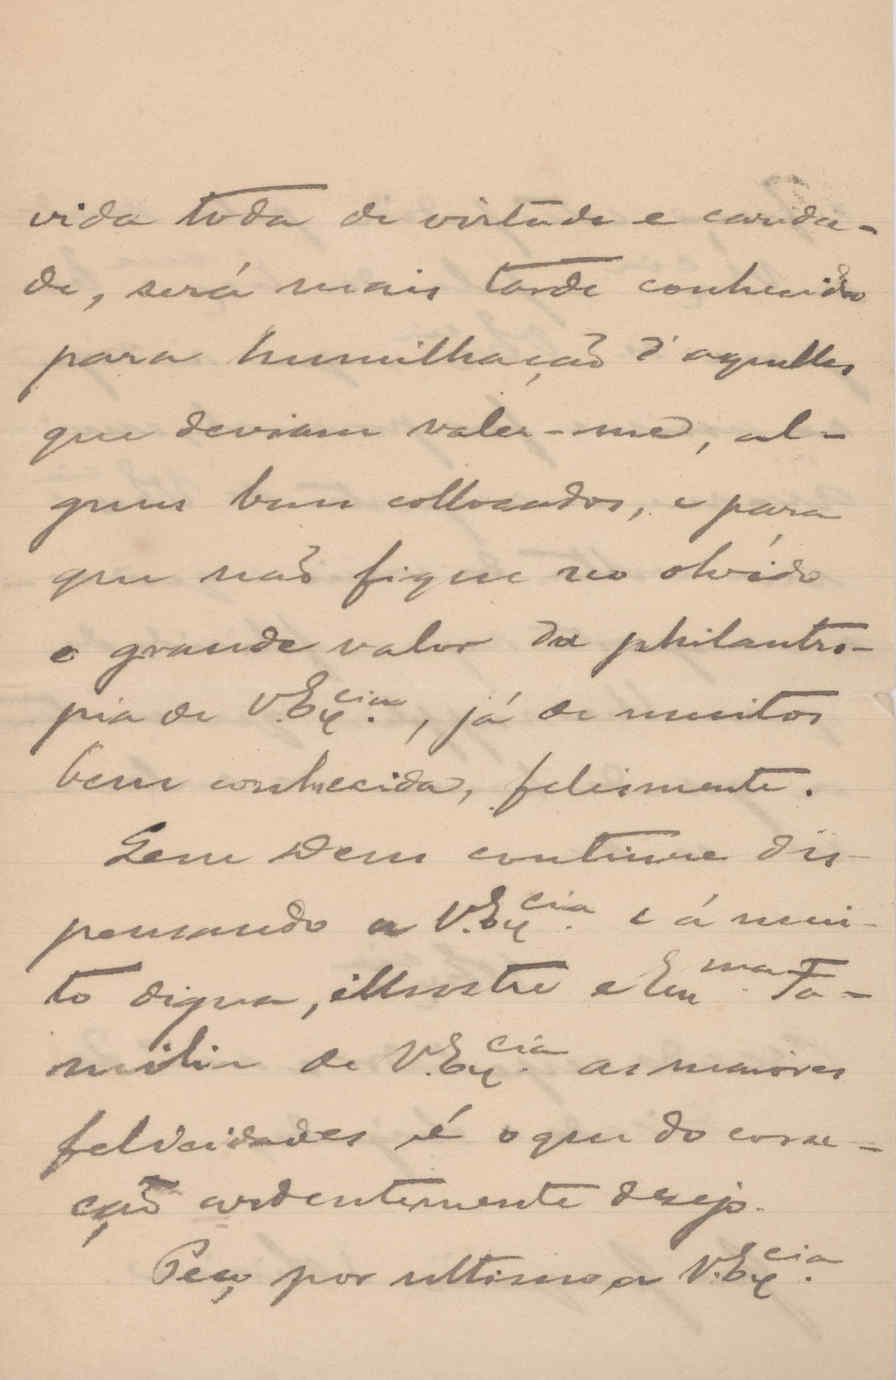 vida toda de virtude e carida-
de, será mais tarde conhecido
para humilhação d'aquelles
que deviam valer-me, al-
guns bem collocados, e para
que não fique no olvído
o grande valor da philantro-
pia de V. Ex.cia, já de muitos
bem conhecida, felismente.
Deus continue dis-
pensando a V. Ex.cia e á mui-
to digna, illustre e Exma. Fa-
milia de V. Ex.cia as maiores
felicidades é o que do cora-
ção ardentemente desejo.
Peço por ultimo a V. Ex.cia